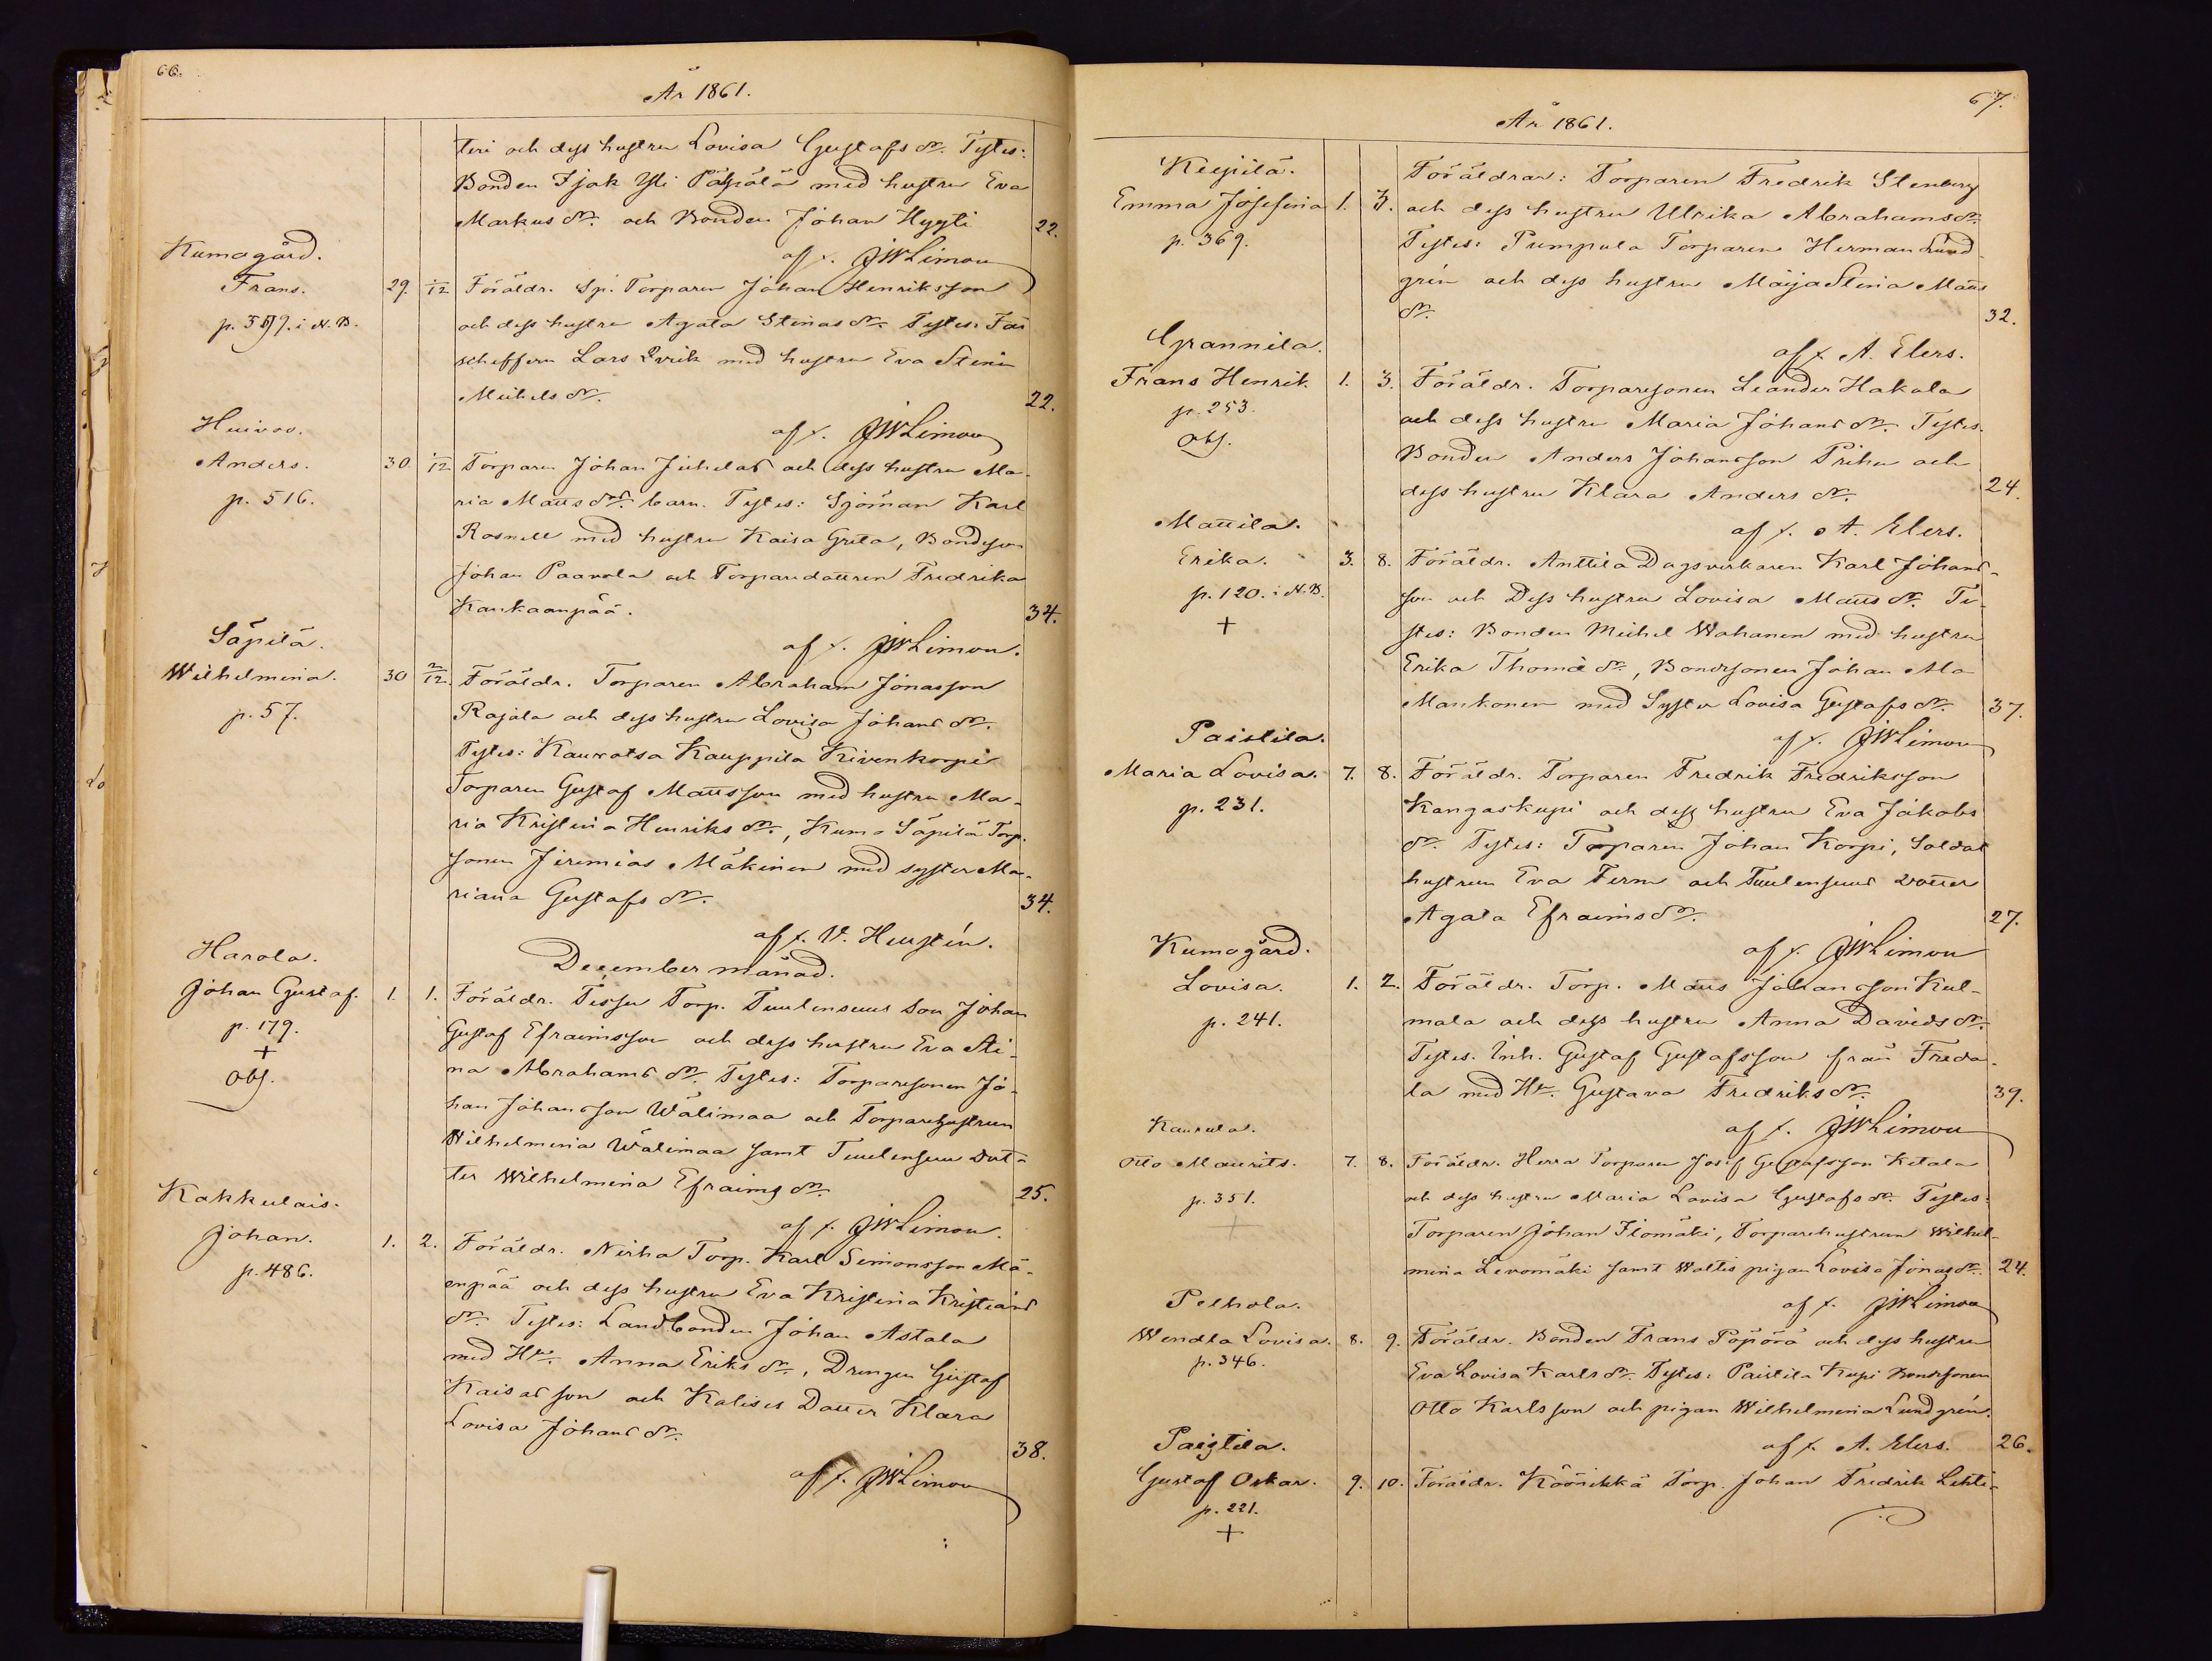 66.
År 1861.
teri och dess hustru Lovisa Gustafs dr. Testes:
Bonden Isak Yli Päspälä med hustru Eva
Markus dr. och Bonden Johan Hygli
22.
af f. JWLimon
Kumogård.
Frans.
29. 1/12 Föräldr. Sp. Torparen Johan Henriksson
och dess hustru Agata Stinas dr. Testes: Får
scheffern Lars Qvrik med hustru Eva Stina
Michels dr.
22.
af f. JWLimon
Huivoo.
Anders.
p. 516.
30 1/12 Torparen Johan Juhelas och dess hustru Ma-
ria Matts dr. barn. Testes: Sjöman Karl
Rosnell med hustru Kaisa Greta, Bondeson
Johan Paavola och Torparedottren Fredrika
Kankaanpää.
34.
af f. JWLimon.
Säpilä.
Wilhelmina.
p. 57.
30 2/12 Föräldr. Torparen Abraham Jonasson
Rajala och dess hustru Lovisa Johans dr.
Testes: Kauvatsa Kauppila Kivenkorpi
Torparen Gustaf Mattsson med hustru Ma-
ria Kristina Henriks dr., Kumo Säpilä Torp.
sonen Jeremias Mäkinen med syster Ma-
riana Gustafs dr.
34.
af f. V. Heurlin.
December månad.
Harola.
Johan Gustaf.
p. 179.
+
Obs.
1. 1. Föräldr. Torp. Tuulensuus Son Johan
Gustaf Efraimsson och dess hustru Eva Sti-
na Abrahams dr. Testes: Torparesonen Jo-
han Johansson Wälimaa och Torparehustrun
Wilhelmina Wälimaa samt Tuulensuu Dot-
ter Wilhelmina Efraims dr.
25.
af f. JWLimon.
Kakkulais.
Johan.
p. 486.
1. 2. Föräldr. Nirha Torp. Karl Simonsson Mä-
enpää och dess hustru Eva Kristina Kristians
dr. Testes: Landbonden Johan Astala
med Hu. Anna Eriks dr., Drengen Gustaf
Kaisasson och Dotter Klara
Lovisa Johans dr.
38.
af f. JWLimon
67.
År 1861.
Keipilä.
Emma Josefina
p. 369.
1. 3. Föräldrar: Torparen Fredrik Stenberg
och dess hustru Ulrika Abrahams dr.
Testes: Pumpula Torparen Herman Lund-
grén och dess hustru Maija Stina Matts
dr.
32.
af f. A. Elers.
Grannila.
Frans Henrik
p. 253.
Obs.
1. 3. Föräldr. Torparesonen Leander Hakola
och dess hustru Maria Johans dr. Testes.
Bonden Anders Johansson Prihu och
dess hustru Klara Anders dr.
24.
af f. A. Elers.
Mattila.
Erika.
p. 120. i N.B.
+
3. 8. Föräldr. Anttila Dagsverkaren Karl Johans-
son och Dess hustru Lovisa Matts dr. Te-
stes: Bonden Michel Wahanen med hustru
Erika Thomæ dr., Bondsonen Johan Ma
Mankonen med Syster Lovisa Gustafs dr.
37.
af f. JWLimon
Paistila.
Maria Lovisa.
p. 231.
7. 8. Föräldr. Torparen Fredrik Fredriksson
Kangaskupi och dess hustru Eva Jakobs
dr. Testes: Torparen Johan Korpi, Soldat
hustrun Eva Ferm och Tuulensuus dotter
Agata Efraims dr.
27.
af f. JWLimon
Kumogård.
Lovisa.
p. 241.
1. 2. Föräldr. Torp. Matts Johansson Kul-
mala och dess hustru Anna Davids dr.
Testes. Inh. Gustaf Gustafsson från Freda-
la med Hu. Gustava Fredriks dr.
39.
af f. JWLimon
Kaurula.
Otto Maurits.
p. 351.
+
7. 8. Föräldr. Herra Torparen Josef Gustafsson Ketala
och dess hustru Maria Lovisa Gustafs dr. Testes:
Torparen Johan Ilomäki, Torparehustrun Wilhel-
mina Levomäki samt Wallis pigan Lovisa Jonas dr.
24.
af f. JWLimon
Pelhola.
Wendla Lovisa.
p. 346.
8. 9. Föräldr. Bonden Frans Pöpörä och dess hustru
Eva Lovisa Karls dr. Testes: Paistila Kupi Bondsonen
Otto Karlsson och pigan Wilhelmina Lundgrén.
26.
af f. A. Elers.
Paistila.
Gustaf Oskar.
p. 221.
+
9. 10. Föräldr. Köönikkä Torp. Johan Fredrik Lehti-